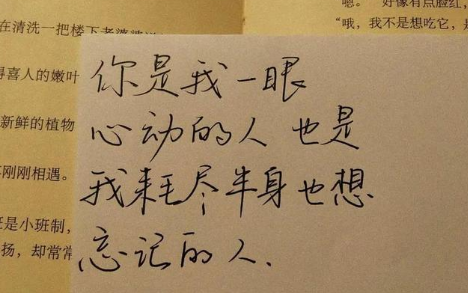 在清洗一把楼下老
得喜人的嫩叶
新鲜的植物
刚刚相遇。
是小班制，
扬，却常常
嗯。”好像有点脸红，
“哦，我不是想吃它，
你是我一眼
心动的人 也是
我耗尽半身也想
忘记的人.